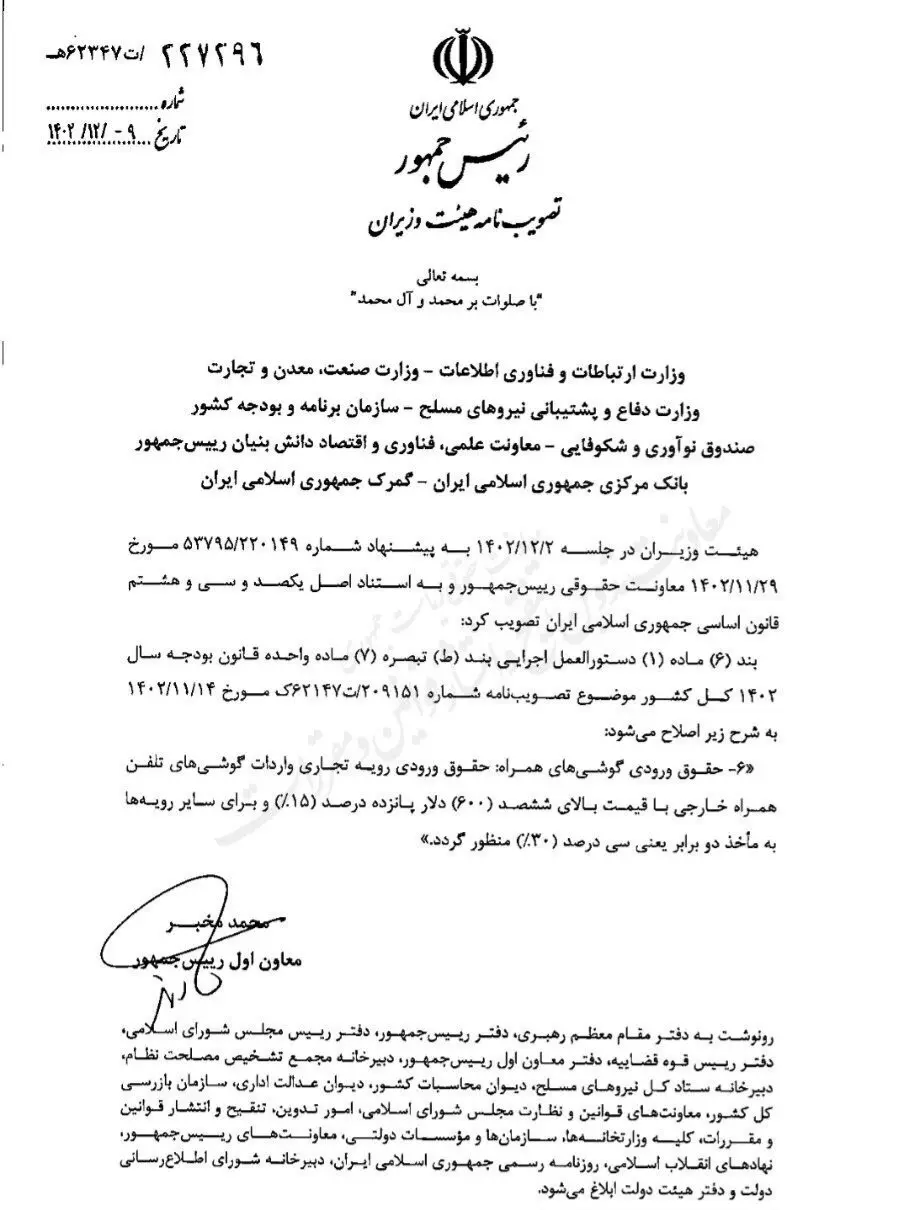 ۲۲۷۲۹۶ /ت۶۲۳۴۷هـ
شماره
تاریخ ۱۴۰۲/۱۲/ -۹
جمهوری اسلامی ایران
رئیس جمهور
تصویب نامه هیئت وزیران
بسمه تعالی
"با صلوات بر محمد و آل محمد"
وزارت ارتباطات و فناوری اطلاعات - وزارت صنعت، معدن و تجارت
وزارت دفاع و پشتیبانی نیروهای مسلح - سازمان برنامه و بودجه کشور
صندوق نوآوری و شکوفایی - معاونت علمی، فناوری و اقتصاد دانش بنیان رییس‌جمهور
بانک مرکزی جمهوری اسلامی ایران - گمرک جمهوری اسلامی ایران
هیئت وزیران در جلسه ۱۴۰۲/۱۲/۲ به پیشنهاد شماره ۵۳۷۹۵/۲۲۰۱۴۹ مورخ
۱۴۰۲/۱۱/۲۹ معاونت حقوقی رییس‌جمهور و به استناد اصل یکصد و سی و هشتم
قانون اساسی جمهوری اسلامی ایران تصویب کرد:
بند (۶) ماده (۱) دستورالعمل اجرایی بند (ط) تبصره (۷) ماده واحده قانون بودجه سال
۱۴۰۲ کل کشور موضوع تصویب‌نامه شماره ۲۰۹۱۵۱/ت۶۲۱۴۷ک مورخ ۱۴۰۲/۱۱/۱۴
به شرح زیر اصلاح می‌شود:
«۶- حقوق ورودی گوشی‌های همراه: حقوق ورودی رویه تجاری واردات گوشی‌های تلفن
همراه خارجی با قیمت بالای ششصد (۶۰۰) دلار پانزده درصد (۱۵٪) و برای سایر رویه‌ها
به مأخذ دو برابر یعنی سی درصد (۳۰٪) منظور گردد.»
محمد مخبر
معاون اول رییس‌جمهور
رونوشت به دفتر مقام معظم رهبری، دفتر رییس‌جمهور، دفتر رییس مجلس شورای اسلامی،
دفتر رییس قوه قضاییه، دفتر معاون اول رییس‌جمهور، دبیرخانه مجمع تشخیص مصلحت نظام،
دبیرخانه ستاد کل نیروهای مسلح، دیوان محاسبات کشور، دیوان عدالت اداری، سازمان بازرسی
کل کشور، معاونت‌های قوانین و نظارت مجلس شورای اسلامی، امور تدوین، تنقیح و انتشار قوانین
و مقررات، کلیه وزارتخانه‌ها، سازمان‌ها و مؤسسات دولتی، معاونت‌های رییس‌جمهور،
نهادهای انقلاب اسلامی، روزنامه رسمی جمهوری اسلامی ایران، دبیرخانه شورای اطلاع‌رسانی
دولت و دفتر هیئت دولت ابلاغ می‌شود.